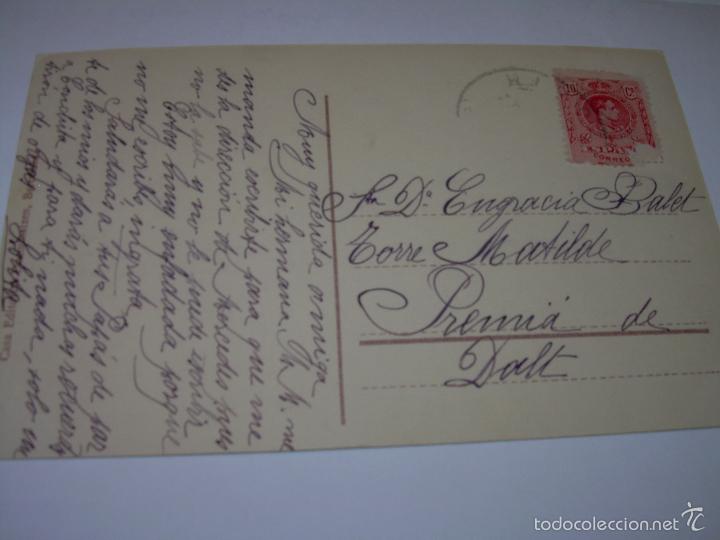 Muy querida amiga
mi hermana M. A. me
manda escribirte para que me
des la dirección de Mercedes pues
no la sabe y no le puede escribir
Estoy muy enfadada porque
no me escribes ingrata.
Saludarás a tus Papás de par
te de los mios y darás muchos recuerdos
a Conchita y para ti nada, solo un
Sra. Dª. Engracia Balet
Torre Matilde
Premiá de
Dalt
10 Cs
CORREO
Casa
todocoleccion.net